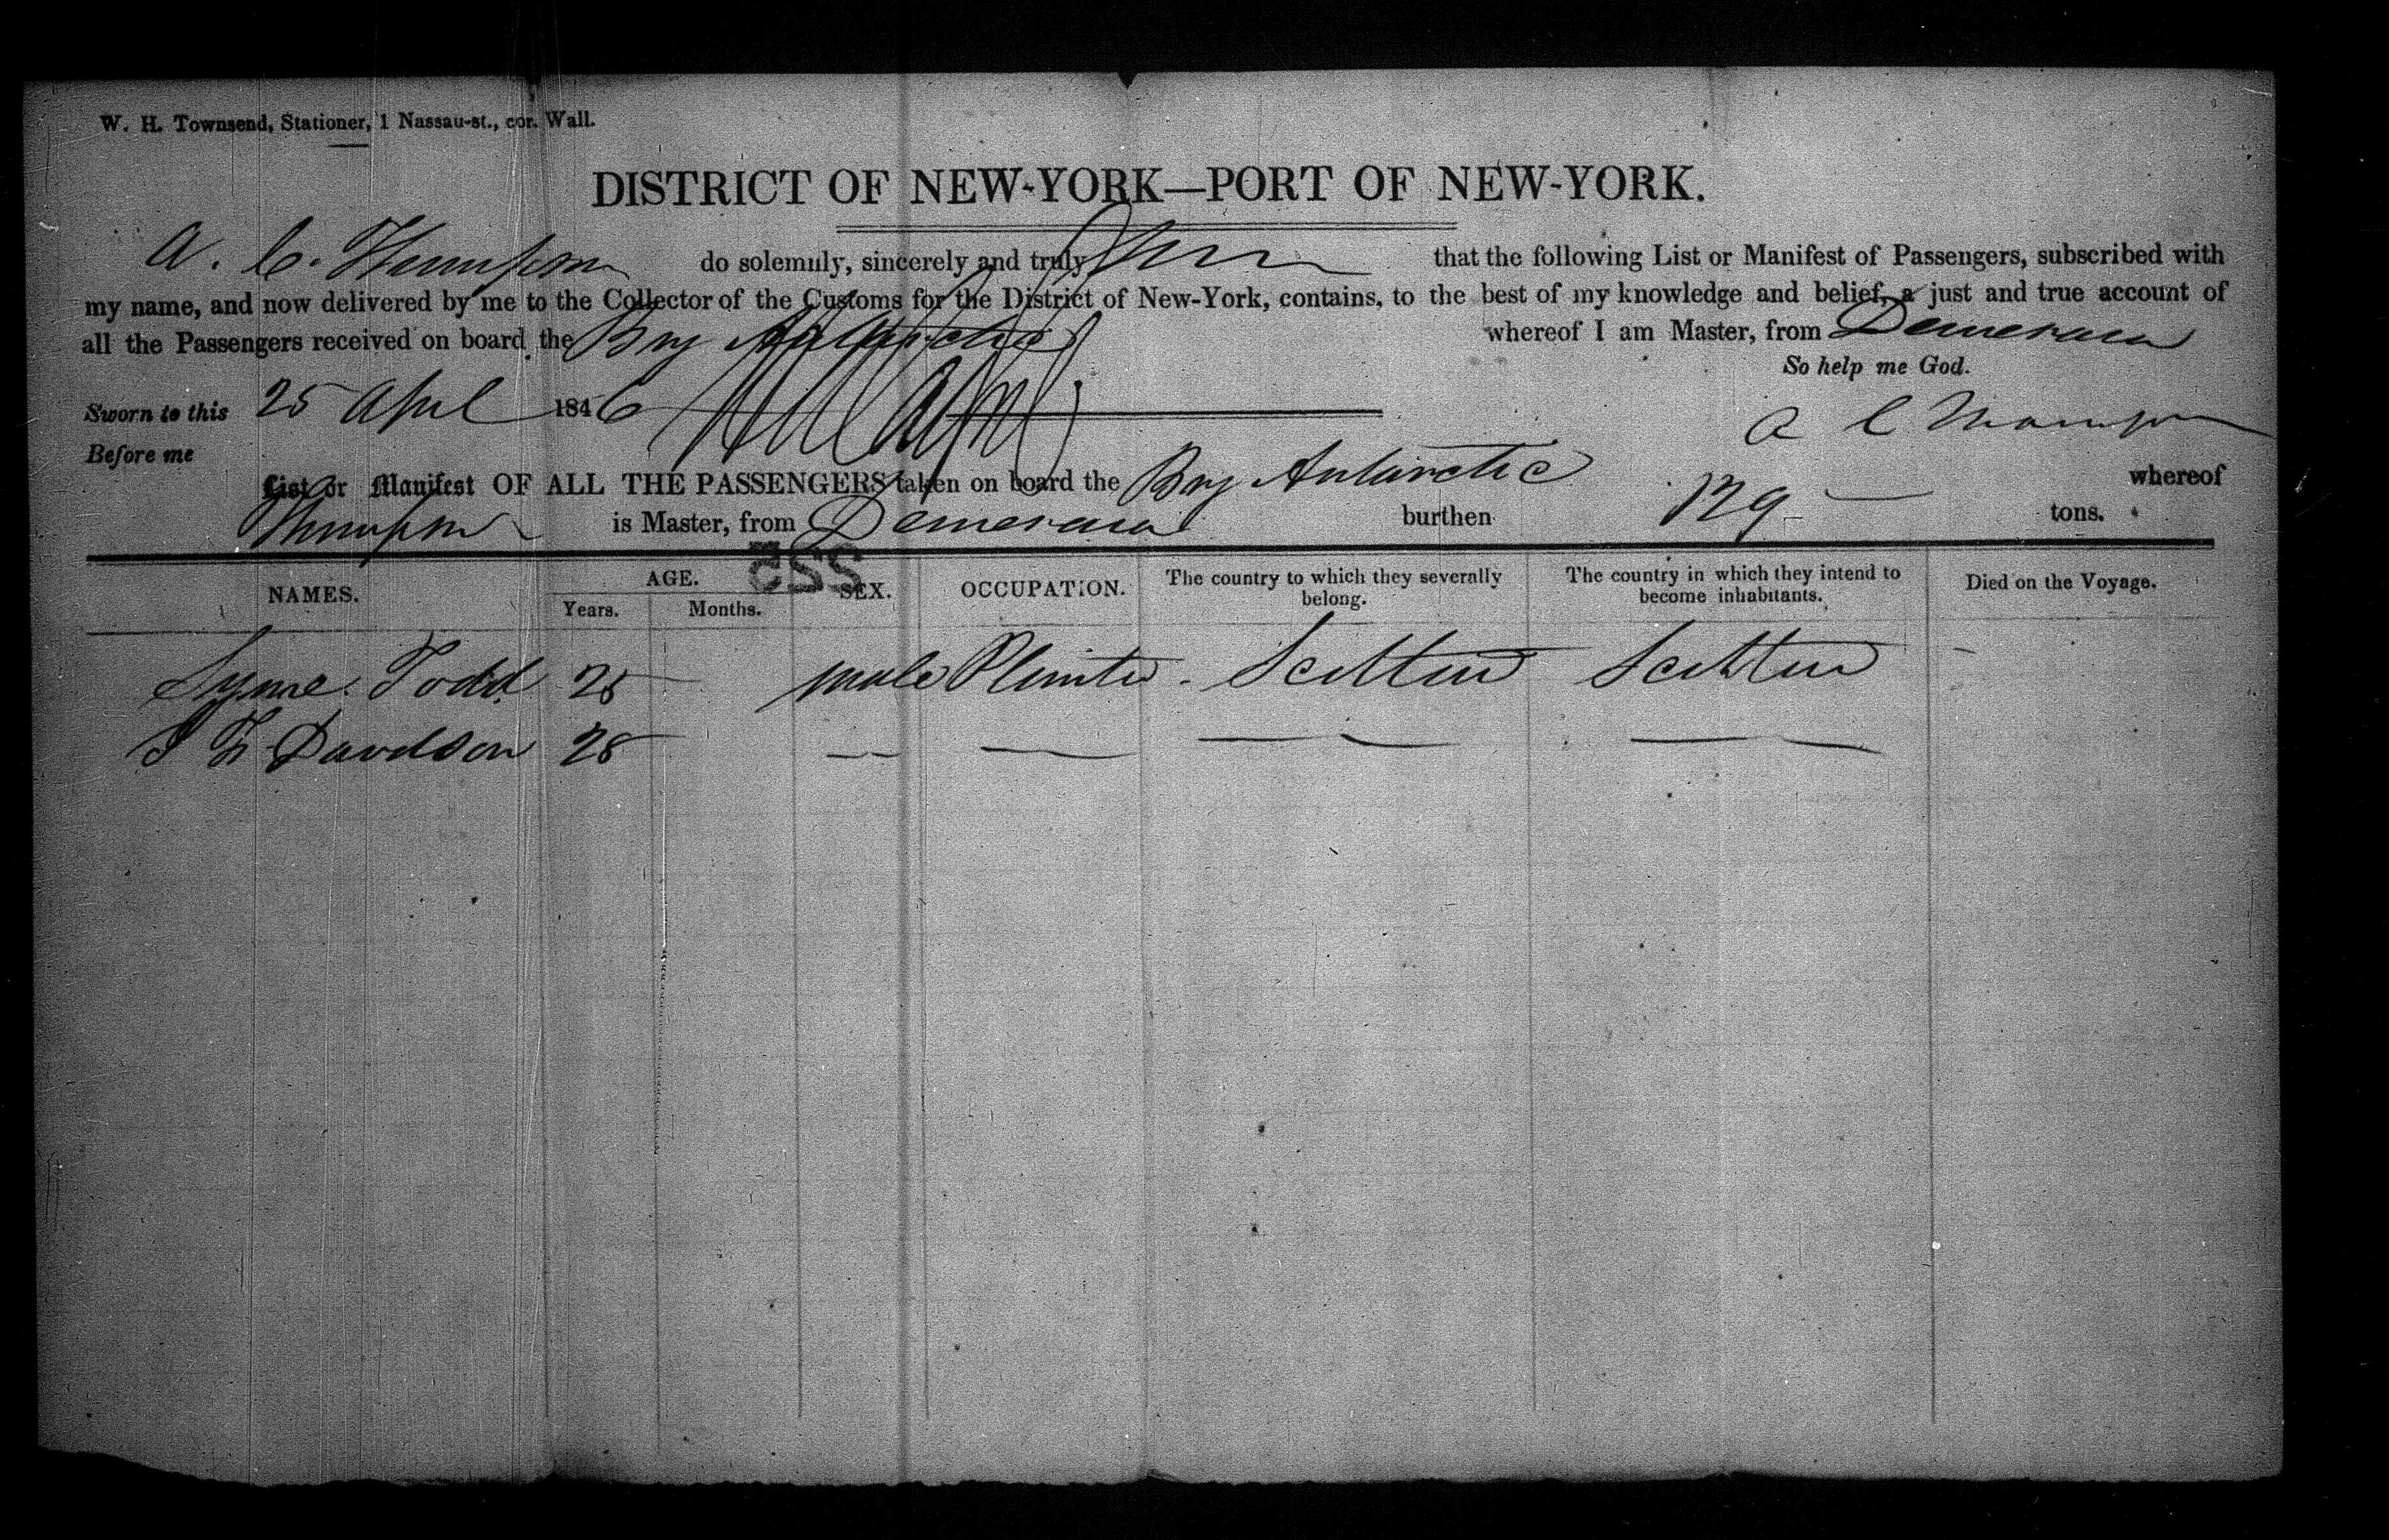 W. H. Townsend, Stationer, 1 Nassau-st., cor. Wall.
DISTRICT OF NEW-YORK—PORT OF NEW-YORK.
A. C. Thompson do solemnly, sincerely and truly that the following List or Manifest of Passengers, subscribed with
my name, and now delivered by me to the Collector of the Customs for the District of New-York, contains, to the best of my knowledge and belief, a just and true account of
all the Passengers received on board the Brig Antarctic whereof I am Master, from Demerara
So help me God.
Sworn to this 25 April 1846
A C Thompson
Before me
List or Manifest OF ALL THE PASSENGERS taken on board the Brig Antarctic whereof
Thompson is Master, from Demerara burthen 129 tons.
225
NAMES. AGE. SEX. OCCUPATION. The country to which they severally belong. The country in which they intend to become inhabitants. Died on the Voyage.
Years. Months.
Syme Todd 25 male Planter Scotland Scotland —
Davidson 28 — — — — — —